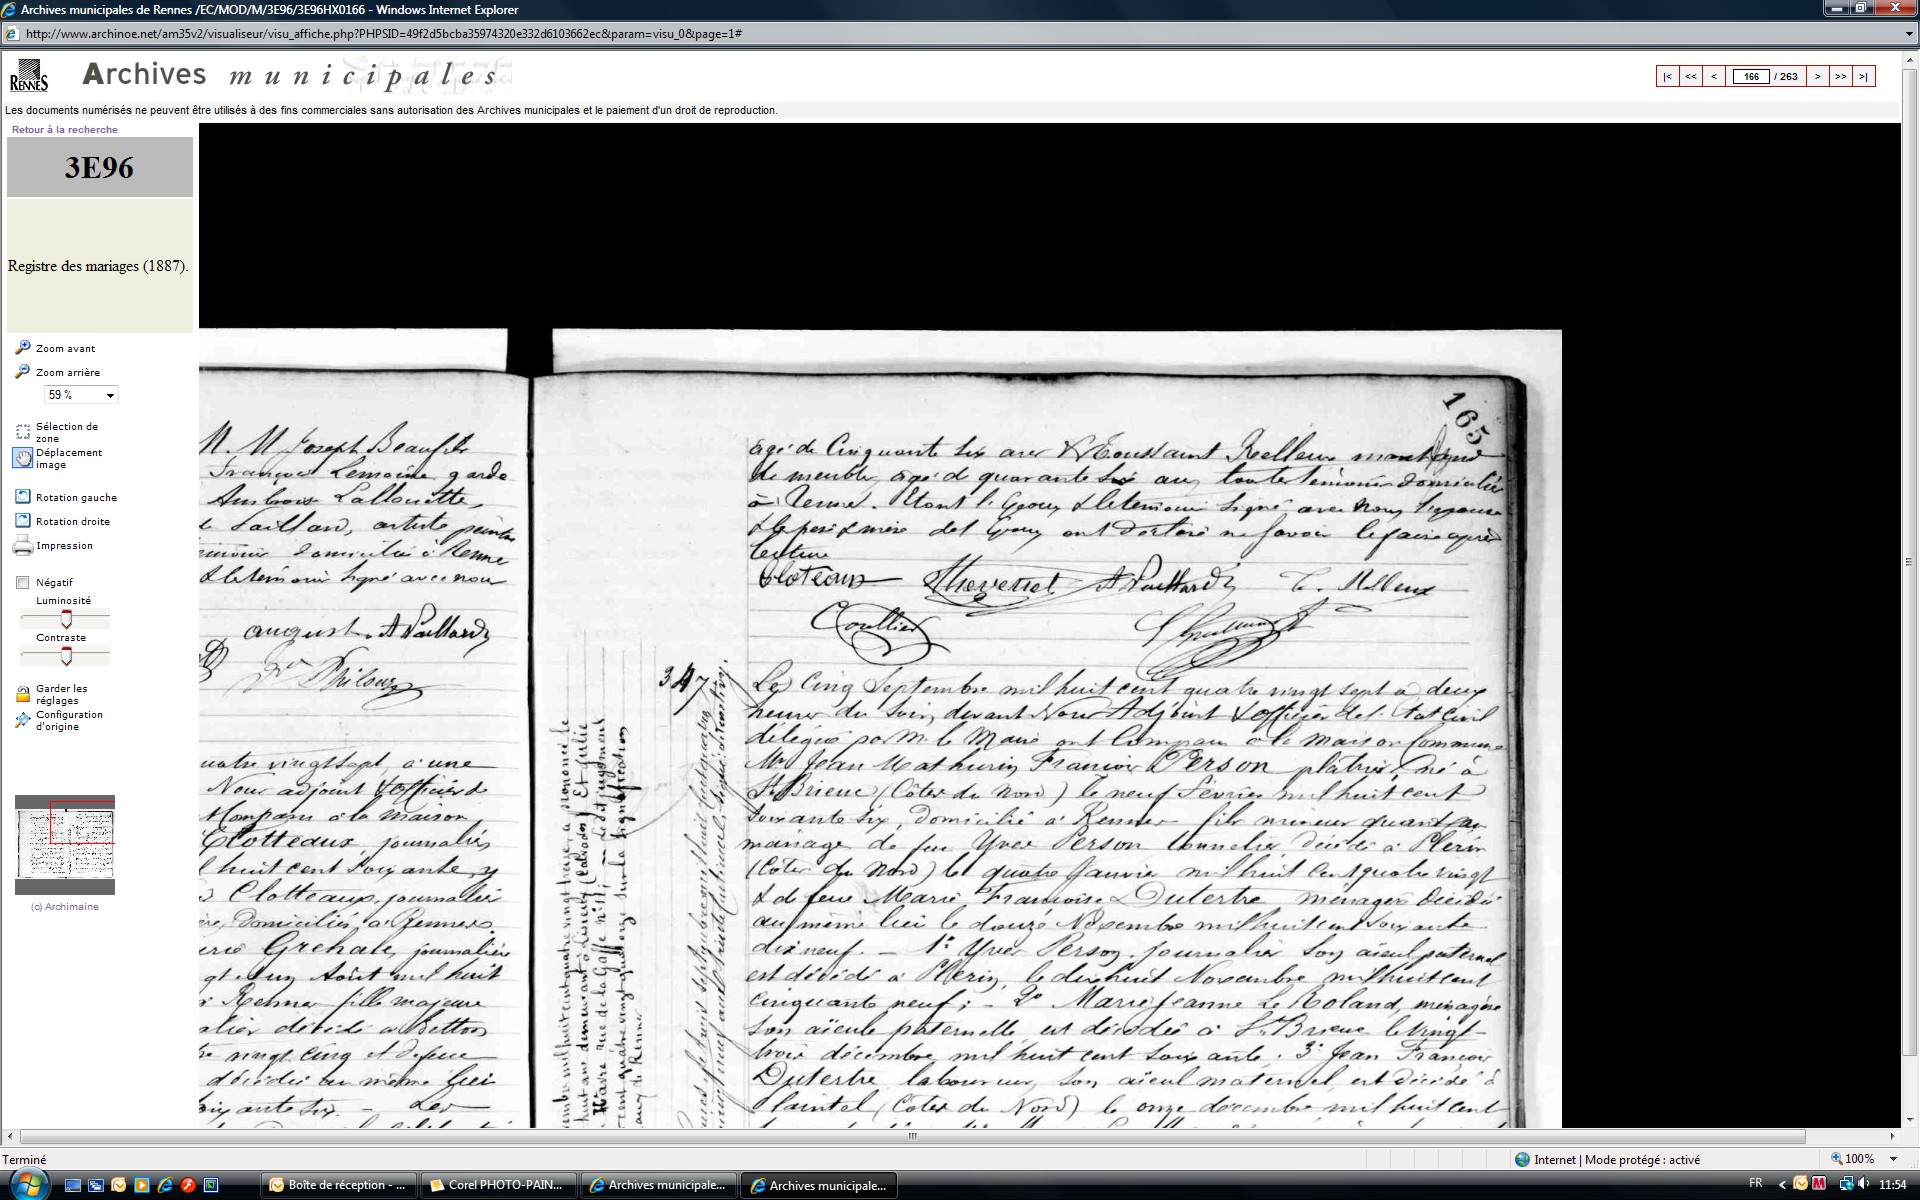 Archives municipales de Rennes /EC/MOD/M/3E96/3E96HX0166 - Windows Internet Explorer
http://www.archinoe.net/am35v2/visualiseur/visu_affiche.php?PHPSID=49f2d5bcba35974320e332d6103662ec&param=visu_0&page=1#
RENNES
Archives municipales
|< << < 166 / 263 > >> >|
Les documents numérisés ne peuvent être utilisés à des fins commerciales sans autorisation des Archives municipales et le paiement d'un droit de reproduction.
Retour à la recherche
3E96
Registre des mariages (1887).
Zoom avant
Zoom arrière
59 %
Sélection de
zone
Déplacement
image
Rotation gauche
Rotation droite
Impression
Négatif
Luminosité
Contraste
Garder les
réglages
Configuration
d'origine
(c) Archimaine
M. M Joseph Beaufils
François Lemoine, garde
Ambroise Lallouette,
artiste peintre
domiciliés à Rennes
signé avec nous
august A Paillard
uatre vingt sept à une
Nous adjoint Officier de
à la maison
Clotteaux, journalier
huit cent soixante
Clotteaux, journalier
domiciliés à Rennes
Grehals, journalière
Août mil huit
à Rennes fille majeure
décédé à Betton
vingt cinq et de feue
décédée au même lieu
oixante six. - Les
165
âgé de Cinquante six ans & Toussaint Relleux marchand
de meubles, âgé de quarante six ans, tous témoins domiciliés
à Rennes. Et ont l'époux & les témoins signé avec nous, l'épouse
& les père & mère de l'époux ont déclaré ne savoir le faire après
lecture
Cloteaux Thevenet A Paillard T. Relleux
Coullier
347
Le Cinq Septembre mil huit cent quatre vingt sept à deux
heures du soir, devant Nous Adjoint & officier de l'Etat Civil
délégué par M. le Maire ont Comparu à la maison Commune
Mr Jean Mathurin François PERSON plâtrier, né à
St Brieuc (Côtes du Nord) le neuf Février mil huit cent
soixante six, domicilié à Rennes fils mineur quant au
mariage de feu Yves Person tonnelier décédé à Plérin
(Côtes du Nord) le quatre Janvier mil huit cent quatre vingt
& de feue Marie Françoise Dutertre ménagère décédée
au même lieu le douze Novembre mil huit cent soixante
dix neuf. - 1° Yves Person, journalier son aïeul paternel
est décédé à Plérin, le dix huit Novembre mil huit cent
cinquante neuf; - 2° Marie Jeanne Le Roland, ménagère
son aïeule paternelle est décédée à St Brieuc le vingt
trois décembre mil huit cent soixante. 3° Jean François
Dutertre laboureur, son aïeul maternel est décédé à
Plaintel (Côtes du Nord) le onze décembre mil huit cent
embre mil huit cent quatre vingt treize, a prononcé le
huit ans demeurant à Lisieux (Calvados) Et Julie
Havre rue de la Gaffe n° 11; - le dit jugement
cent quatre vingt quatorze sur la signification
Rennes
Terminé
Internet | Mode protégé : activé
100%
Boîte de réception - ...
Corel PHOTO-PAIN...
Archives municipale...
Archives municipale...
FR
11:54